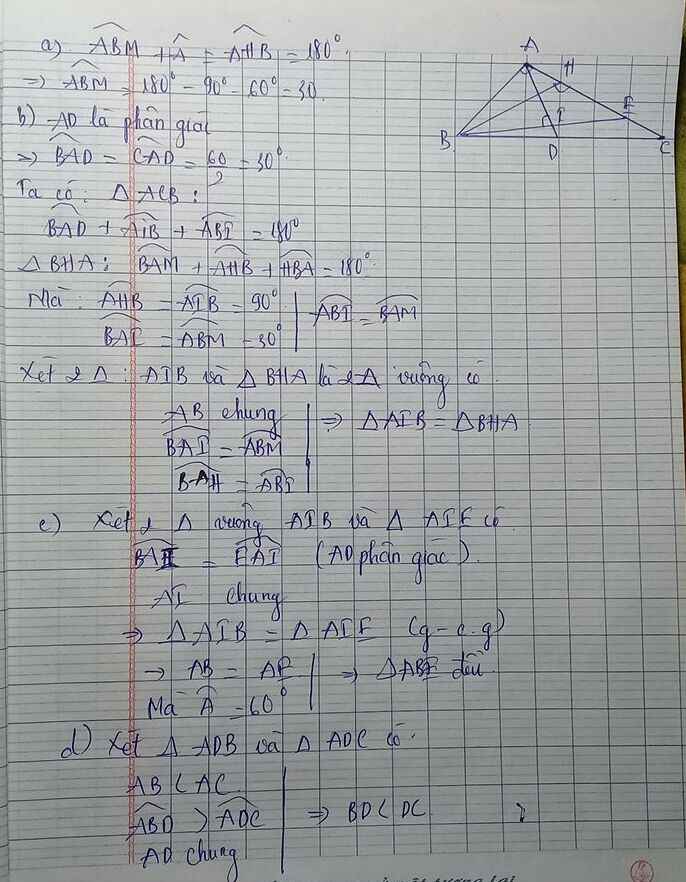 a) ABM + A = AHB = 180°.
⇒ ABM = 180° - 90° - 60° = 30
A
H
E
I
B
D
C
b) AD là phân giác
⇒ BAD = CAD = 60/2 = 30°.
Ta có: Δ ACB:
BAD + AIB + ABI = 180°
Δ BHA: BAM + AHB + HBA = 180°.
Mà: AHB = AIB = 90° | ABI = BAM
BAI = ABM = 30°
Xét 2 Δ: AIB và Δ BHA là 2 Δ vuông có.
AB chung ⇒ Δ AIB = Δ BHA
BAI = ABM
BAH = ABI
c) Xét 2 Δ vuông AIB và Δ AIE có.
BAI = EAI (AD phân giác).
AI chung
⇒ Δ AIB = Δ AIE (g-c.g)
→ AB = AE ⇒ Δ ABE đều.
Mà A = 60°
d) Xét Δ ADB và Δ ADC có.
AB < AC
ABD > ADC ⇒ BD < DC
AD chung